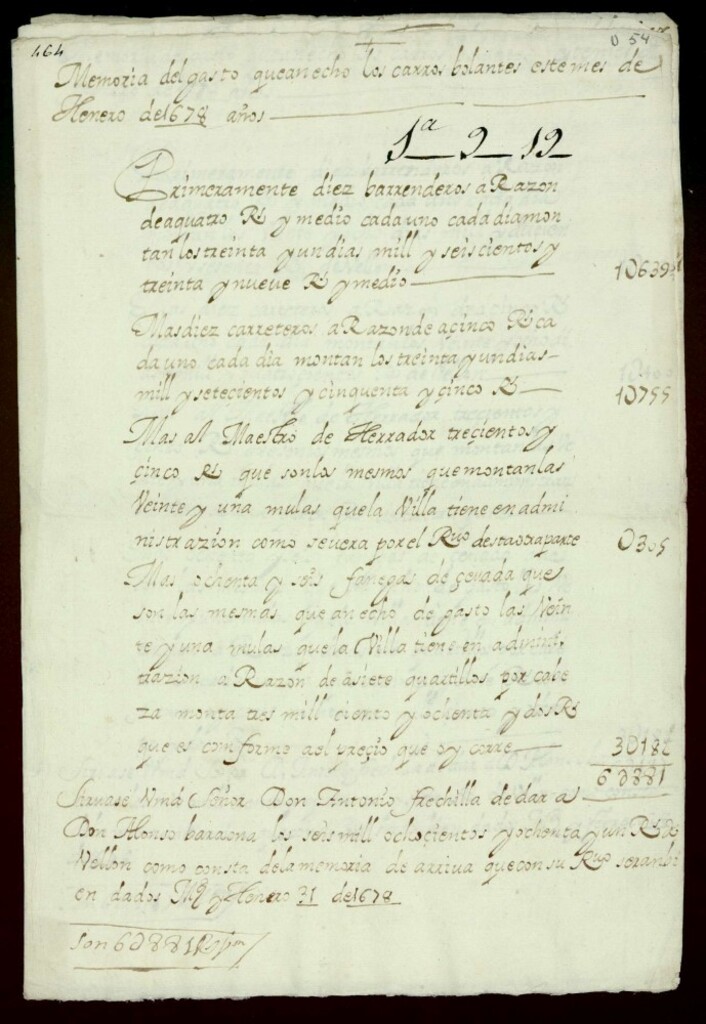 464
0 54
Memoria del gasto que an echo los carros bolantes este mes de
Henero de 1678 años
1ª 9 19
Primeramente diez barrenderos a Razon
de a quatro Rs y medio cada uno cada dia mon
tan los treinta y un dias mill y seiscientos y
treinta y nueve Rs y medio
1U639
Mas diez carreteros a Razon de a çinco Rs ca
da uno cada dia montan los treinta y un dias
mill y setecientos y cinquenta y çinco Rs
1U755
Mas al Maestro de Herrador treçientos y
çinco Rs que son los mesmos que montan las
Veinte y una mulas que la Villa tiene en admi
nistrazion como se vera por el Rvo desta otra parte
U305
Mas ochenta y seis fanegas de çevada que
son las mesmas que an echo de gasto las Vein
te y una mulas que la Villa tiene en adminis
trazion a Razon de a siete quartillos por cabe
za monta tres mill ciento y ochenta y dos Rs
que es conforme a el preçio que oy corre
3U182
6U881
Sirvase Vmd Señor Don Antonio frechilla de dar a
Don Alonso baraona los seis mill ochoçientos y ochenta y un Rs de
Vellon como consta de la memoria de arriva que con su Rvo seran bi
en dados Md y Henero 31 de 1678
son 6U881 Rs